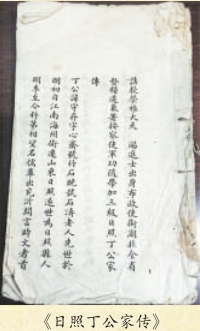 誥授榮祿大夫 賜進士出身布政使銜湖北全省
督糧道兼署按察使軍功隨帶加三級日照丁公家
傳
丁公諱守存字心齋號竹石晚號石濤老人先世於
明初自江南海州徙遷山東日照遂世為日照縣人
明季至今科第相望名儒輩出究許鄭言時文者首
《日照丁公家传》